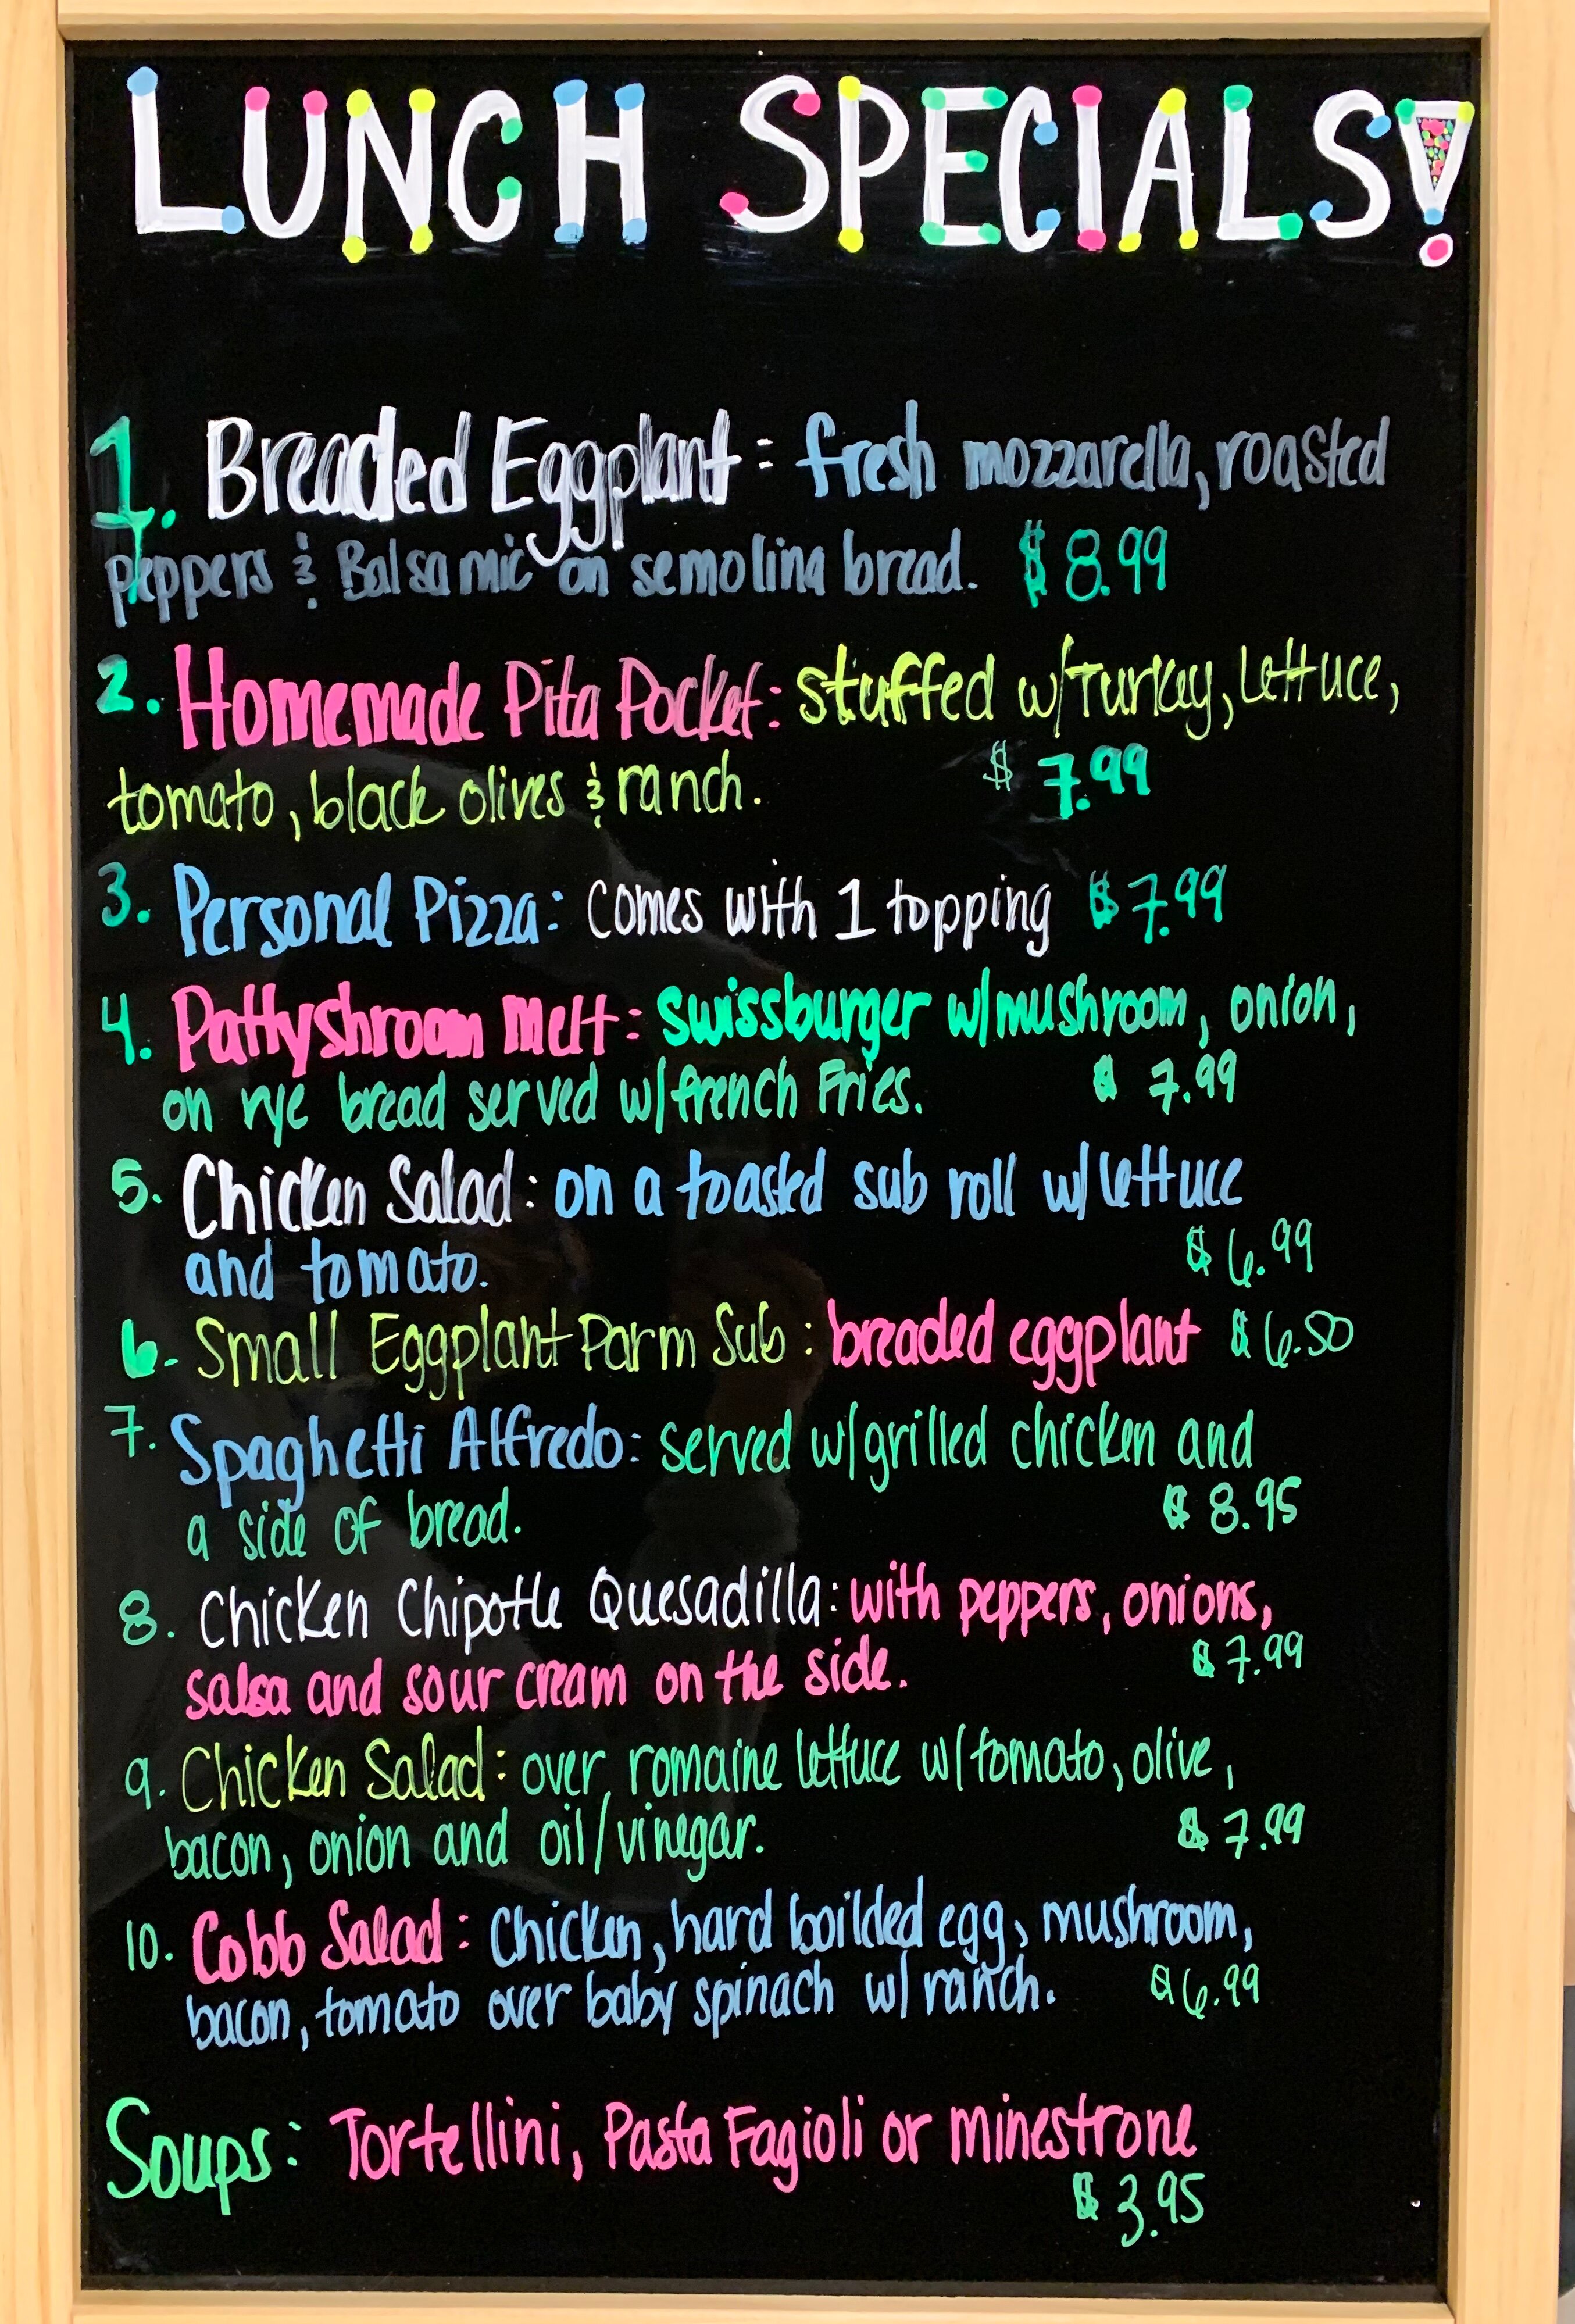 LUNCH SPECIALS!
1. Breaded Eggplant: fresh mozzarella, roasted
peppers & Balsamic on semolina bread. $8.99
2. Homemade Pita Pocket: stuffed w/Turkey, lettuce,
tomato, black olives & ranch. $7.99
3. Personal Pizza: comes with 1 topping $7.99
4. Pattyshroom Melt: swissburger w/mushroom, onion,
on rye bread served w/french Fries. $7.99
5. Chicken Salad: on a toasted sub roll w/lettuce
and tomato. $6.99
6. Small Eggplant Parm Sub: breaded eggplant $6.50
7. Spaghetti Alfredo: served w/grilled chicken and
a side of bread. $8.95
8. Chicken Chipotle Quesadilla: with peppers, onions,
salsa and sour cream on the side. $7.99
9. Chicken Salad: over romaine lettuce w/tomato, olive,
bacon, onion and oil/vinegar. $7.99
10. Cobb Salad: Chicken, hard boilded egg, mushroom,
bacon, tomato over baby spinach w/ranch. $6.99
Soups: Tortellini, Pasta Fagioli or minestrone
$3.95